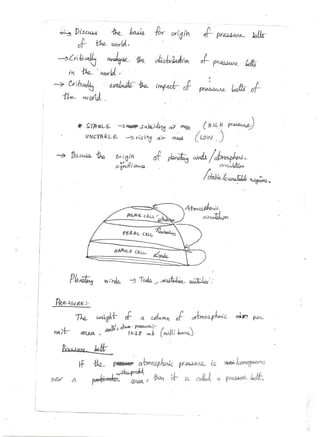 → Discuss the basis for origin of pressure belts
of the world.
→ Critically analyse the distribution of pressure belts
in the world.
→ Critically evaluate the impact of pressure belts of
the world.
* STABLE → subsiding air mass (HIGH pressure)
UNSTABLE → rising air mass (LOW)
→ Discuss the origin of planetary winds / atmospheric
significance circulation
/stable/unstable regions.
Atmospheric
circulation
POLAR CELL
FERAL CELL
HADLEY CELL
Planetary winds → Trade, westerlies
PRESSURE:-
The weight of a column of atmospheric air per
unit area. pressure:
(milli bars)
Pressure belt
If the atmospheric pressure is homogeneous
over a widespread area, then it is called a pressure belt.